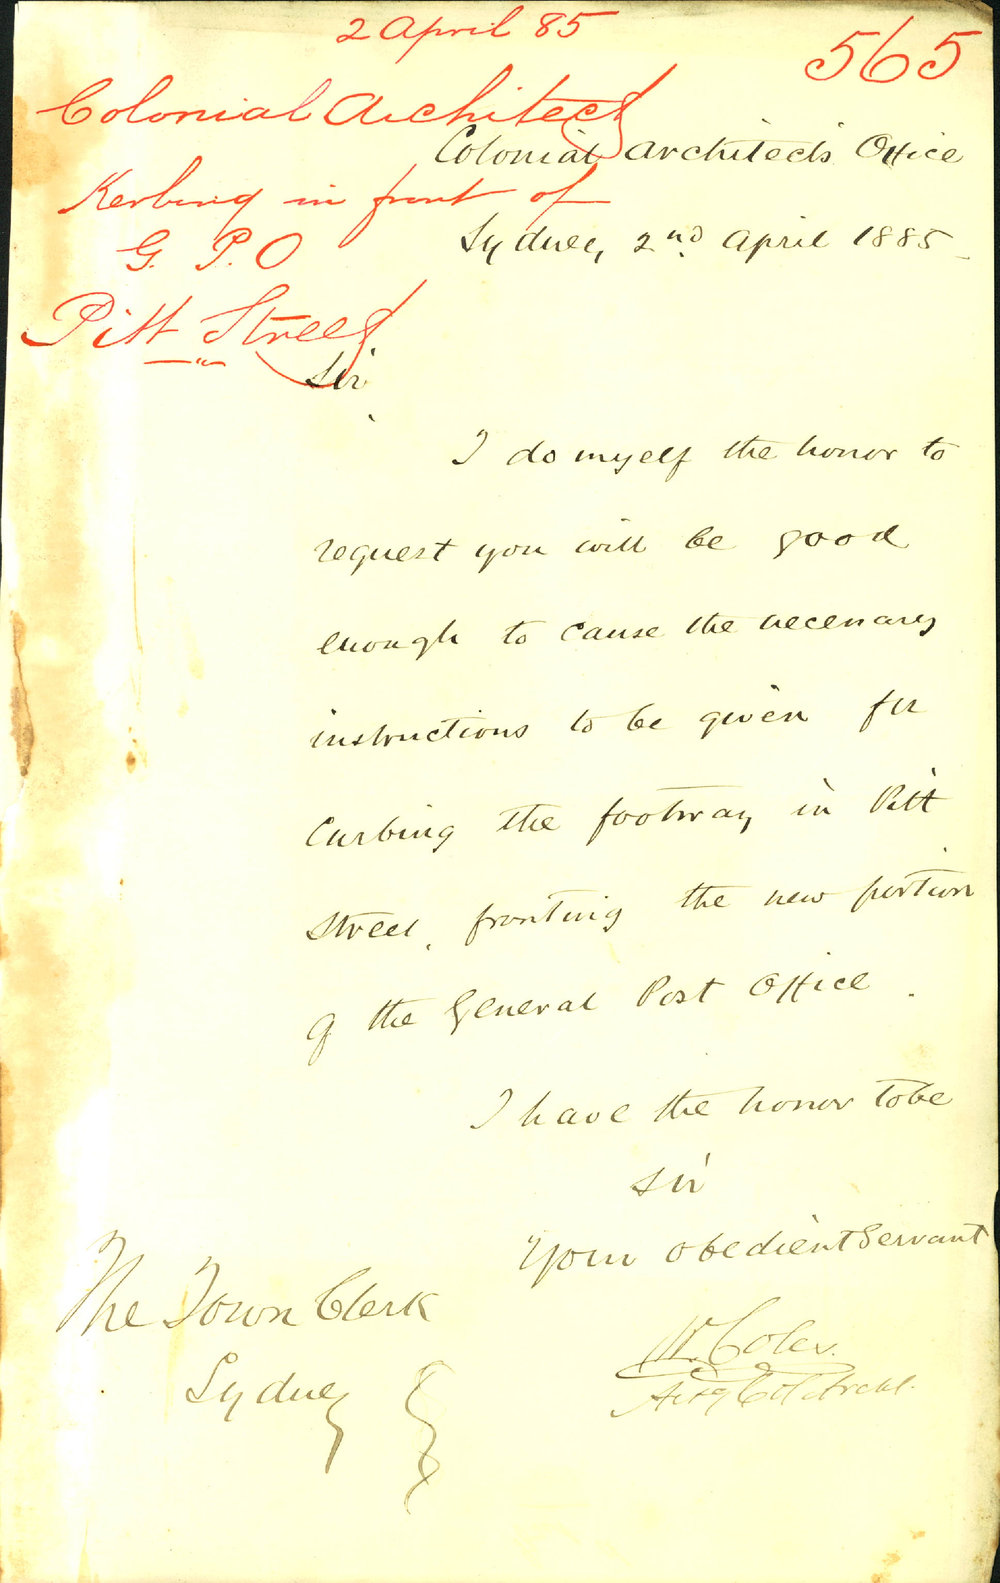 2 April 85
565
Colonial Architect
Kerbing in front of
G. P. O
Pitt Street
Colonial Architects Office
Sydney, 2nd April 1885
Sir
I do myself the honor to
request you will be good
enough to cause the necessary
instructions to be given for
Curbing the footway in Pitt
Street, fronting the new portion
of the General Post Office.
I have the honor to be
Sir
Your obedient Servant
W. Coles.
Actg Col Archt.
The Town Clerk
Sydney